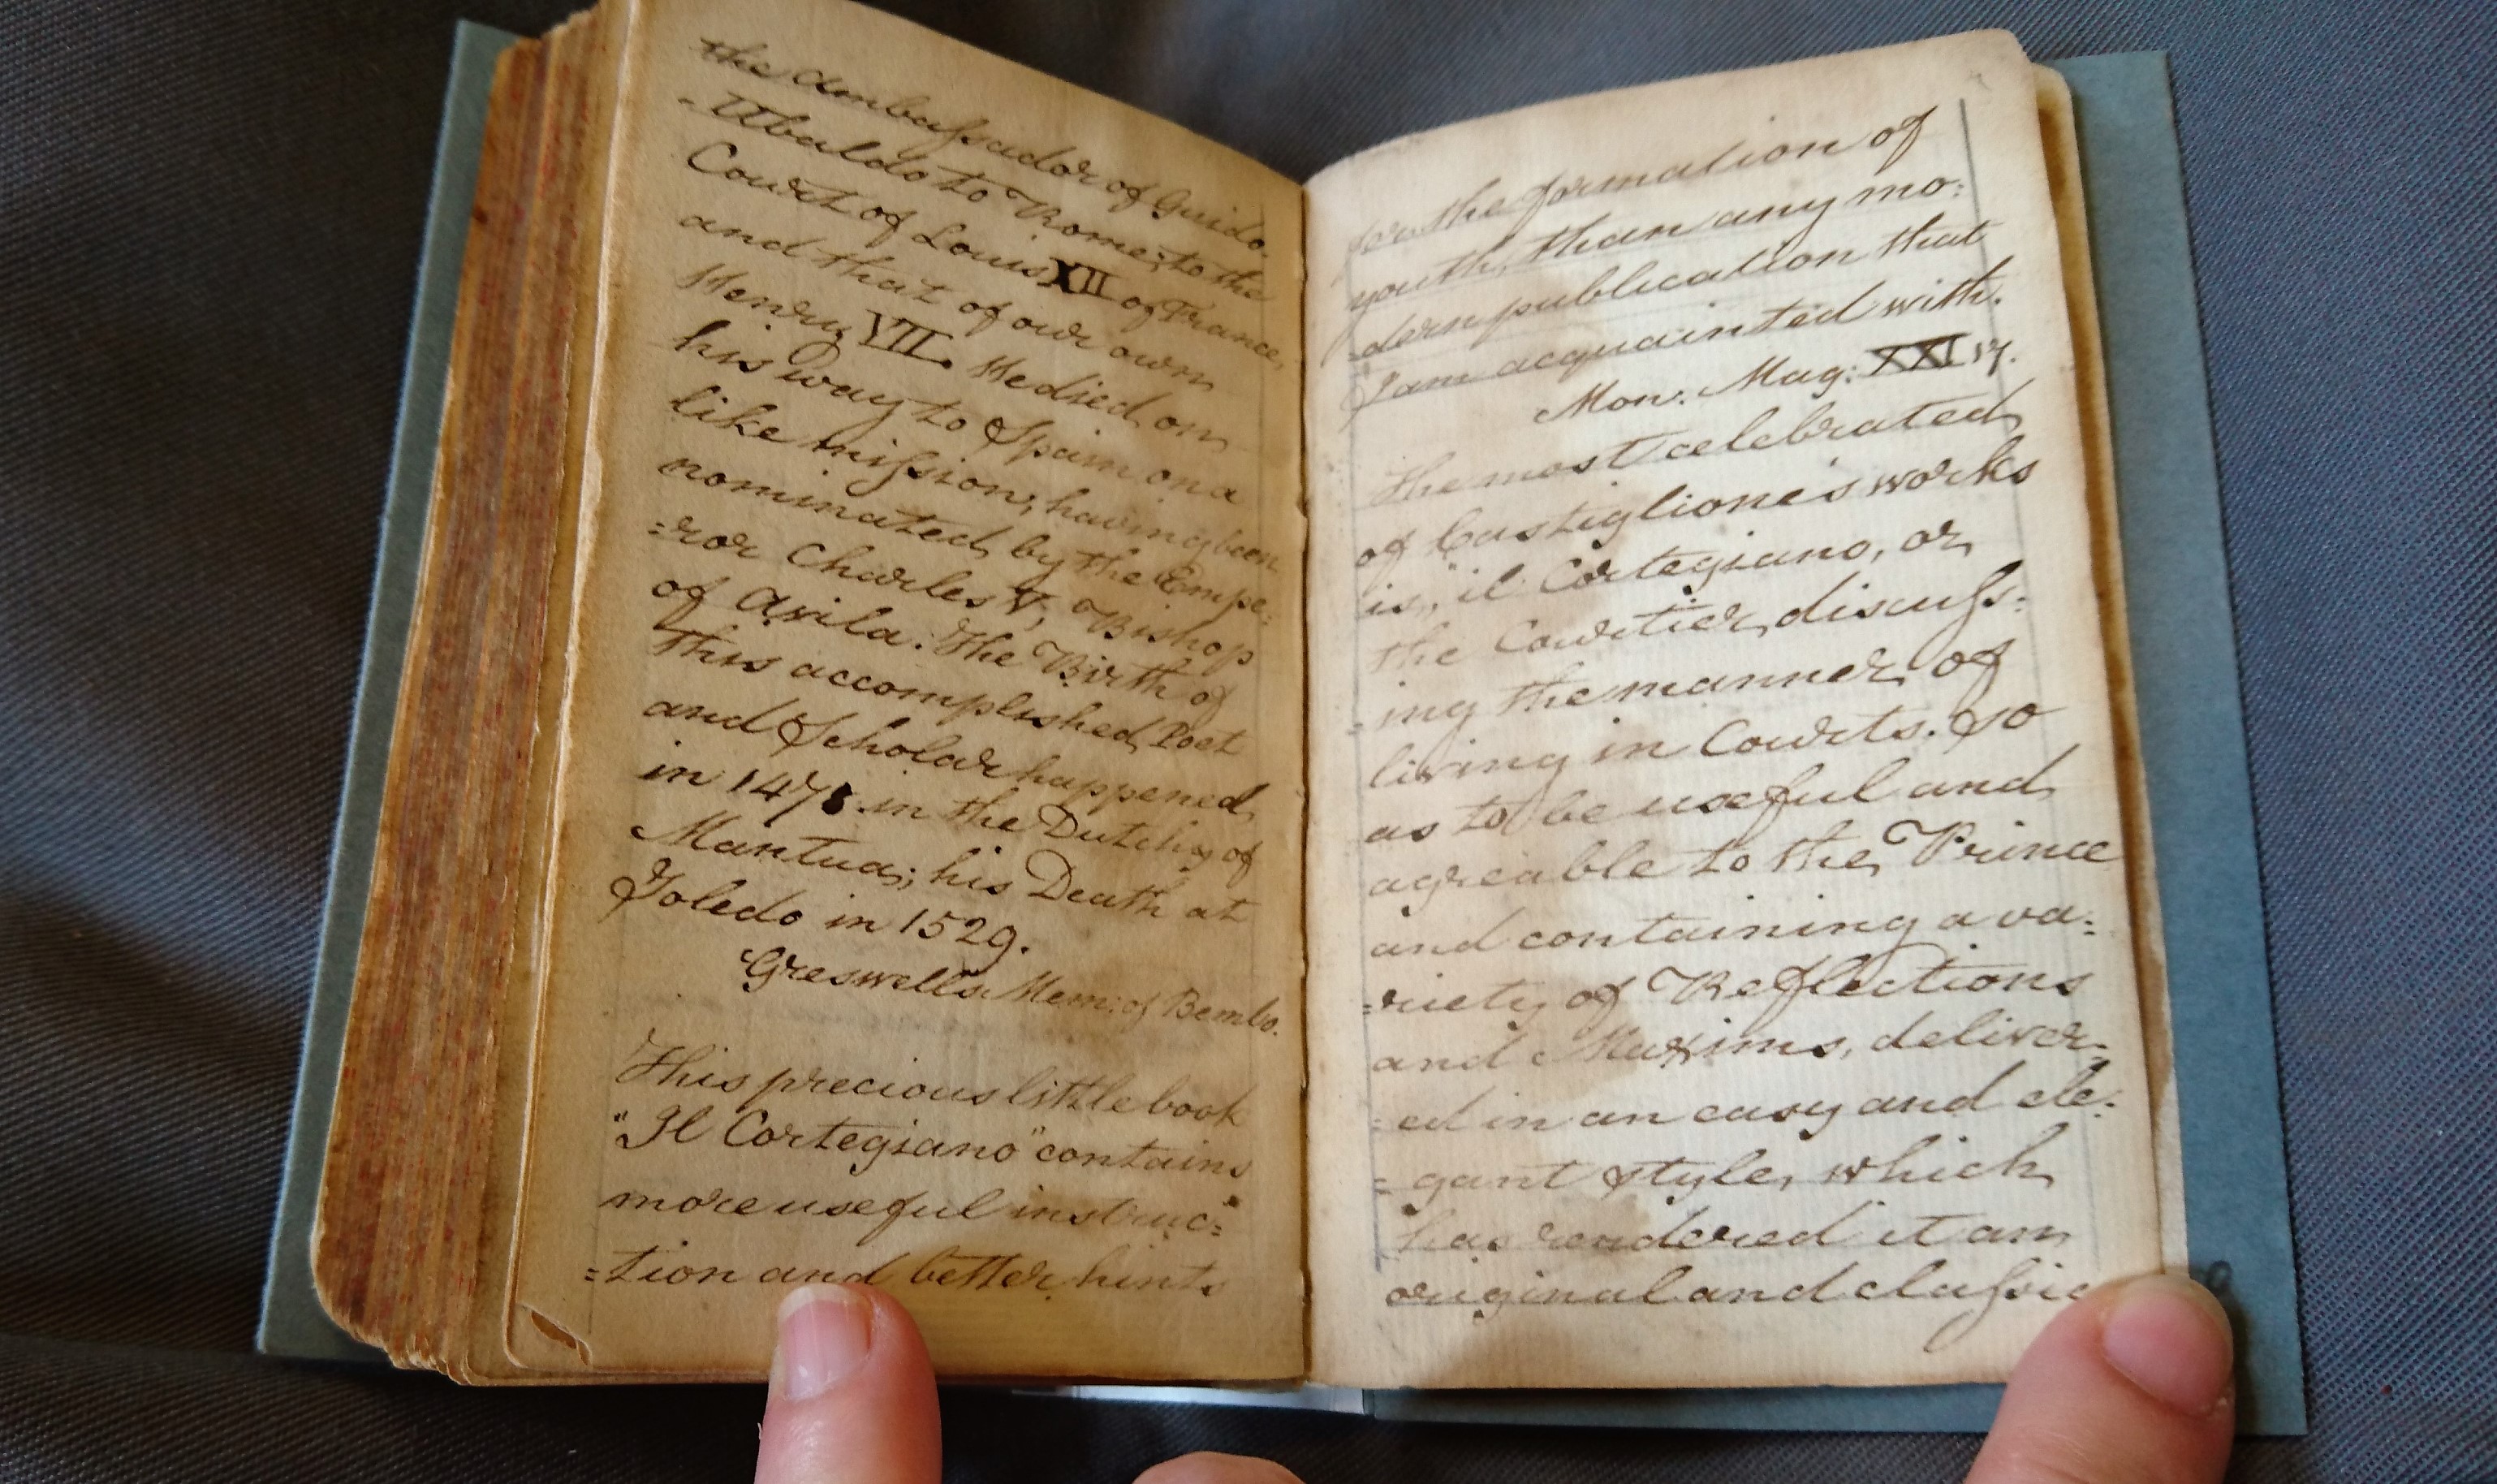 the Ambassador of Guido-
-Ubaldo to Rome; to the
Court of Louis XII of France,
and that of our own
Henry VII. He died on
his way to Spain on a
like mission, having been
nominated by the Empe:
=ror Charles V, Bishop
of Avila. The Birth of
this accomplished Poet
and Scholar happened
in 1478 in the Dutchy of
Mantua; his Death at
Toledo in 1529.
Greswell's Mem: of Bembo.
This precious little book
"Il Cortegiano" contains
more useful instruc:
=tion and better hints
for the formation of
youth, than any mo:
=dern publication that
I am acquainted with.
Mon: Mag: XXI 17.
The most celebrated
of Castiglione's works
is, "il Cortegiano, or
the Courtier, discuss:
=ing the manner of
living in Courts. So
as to be useful and
agreable to the Prince
and containing a va:
=riety of Reflections
and Maxims, deliver:
=ed in an easy and ele:
=gant style, which
has rendered it an
original and classic